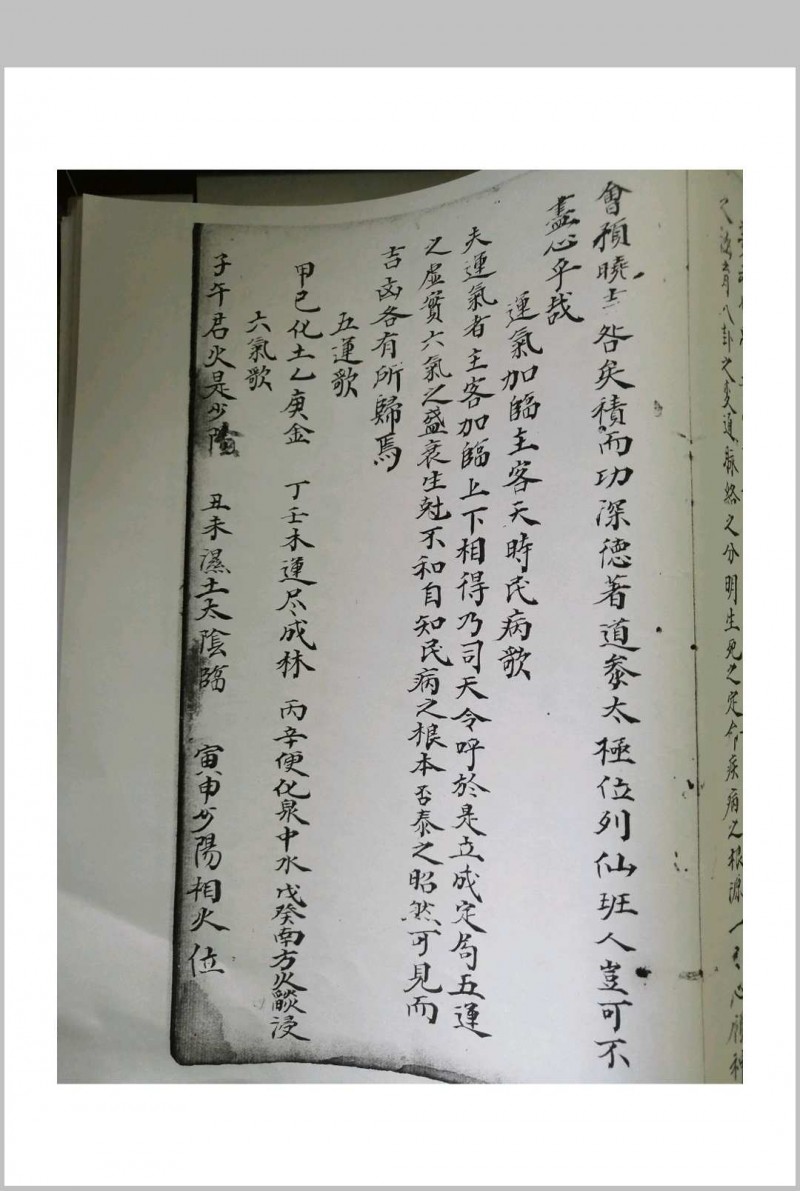 之分明生死之定命疾病之根源
會預曉吉咎矣積而功深德著道叅太極位列仙班人豈可不
盡心乎哉
運氣加臨主客天時民病歌
夫運氣者主客加臨上下相得乃司天令呼於是立成定局五運
之虛實六氣之盛衰生尅不和自知民病之根本否泰之昭然可見而
吉凶各有所歸焉
五運歌
甲己化土乙庚金 丁壬木運尽成林 丙辛便化泉中水戊癸南方火燄浸
六氣歌
子午君火是少陰 丑未濕土太陰臨 寅申少陽相火位